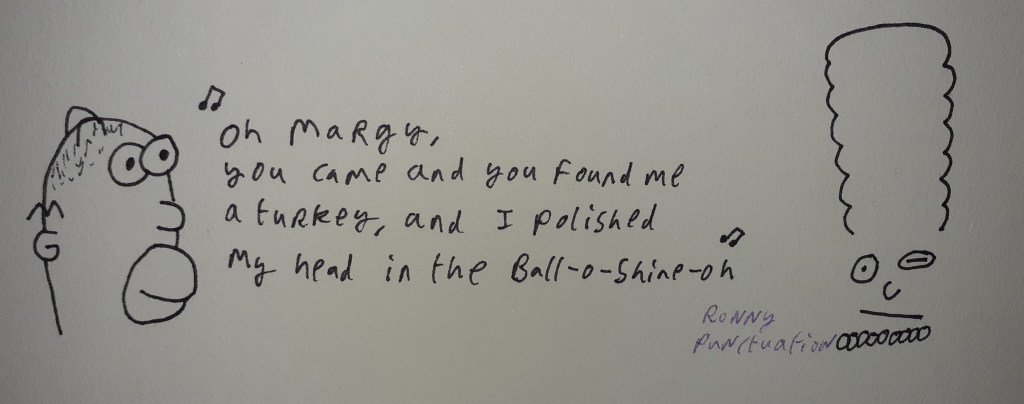 Oh Margy,
you came and you found me
a turkey, and I polished
My head in the Ball-o-Shine-oh
Ronny
Punctuation